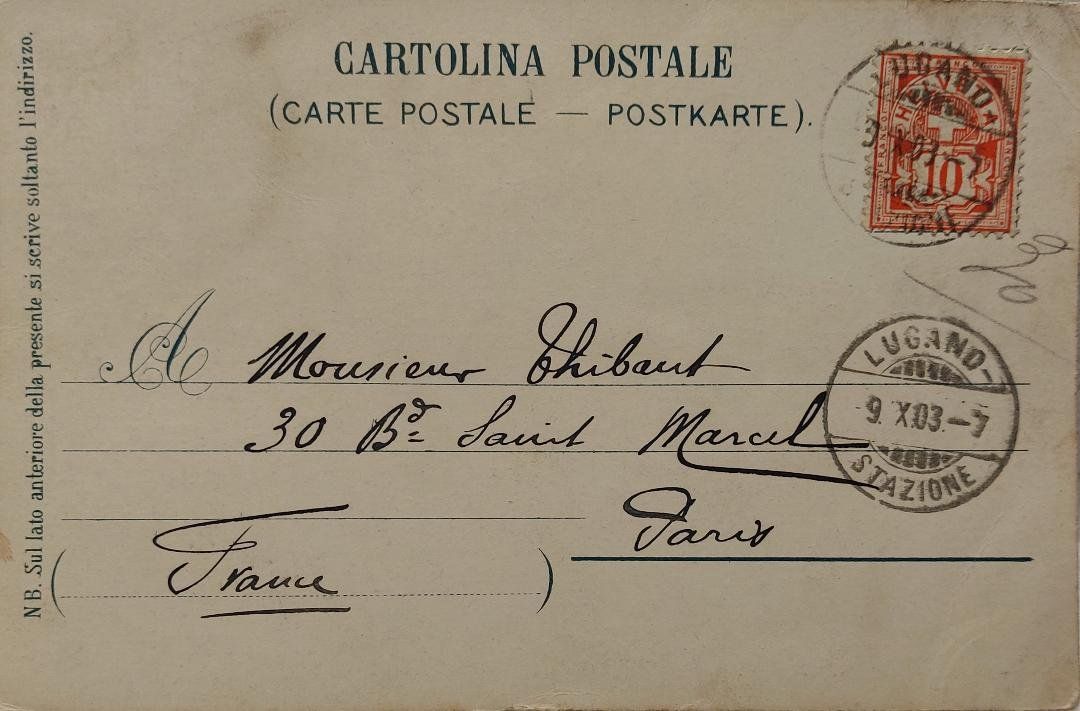 CARTOLINA POSTALE
(CARTE POSTALE — POSTKARTE).
NB. Sul lato anteriore della presente si scrive soltanto l'indirizzo.
LUGANO
9. X.03.–7
HELVETIA
FRANCO
10
A Monsieur Thibaut
30 Bd= Saint Marcel
Paris
(France)
LUGANO–
9. X.03.–7
STAZIONE